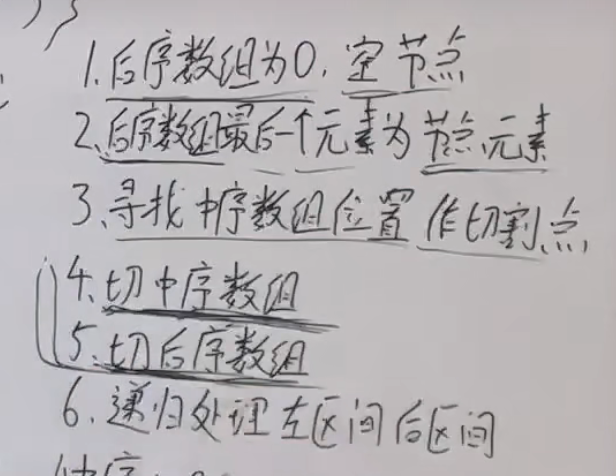 1.后序数组为0,空节点
2.后序数组最后一个元素为节点元素
3、寻找中序数组位置作切割点
4、切中序数组
5、切后序数组
6、递归处理左区间后区间